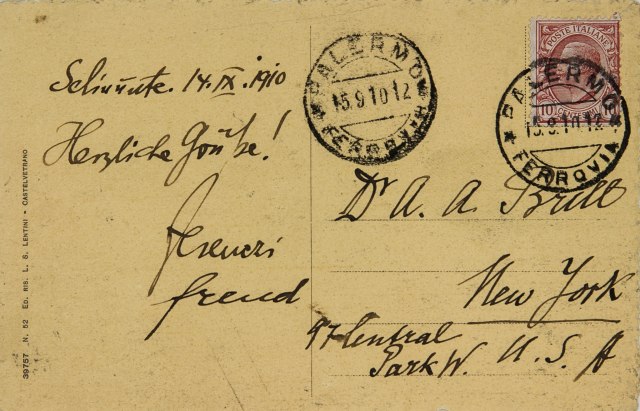 Selinunte. 14.IX.1910
Herzliche Grüße!
Ferenczi
freud
PALERMO
15.9.10 12
FERROVIA
POSTE ITALIANE
10
PALERMO
15.9.10 12
FERROVIA
Dr A. A. Brill
New York
97 Central
Park W. U. S. A
39757 N. 52 ED. RIS. L. S. LENTINI - CASTELVETRANO